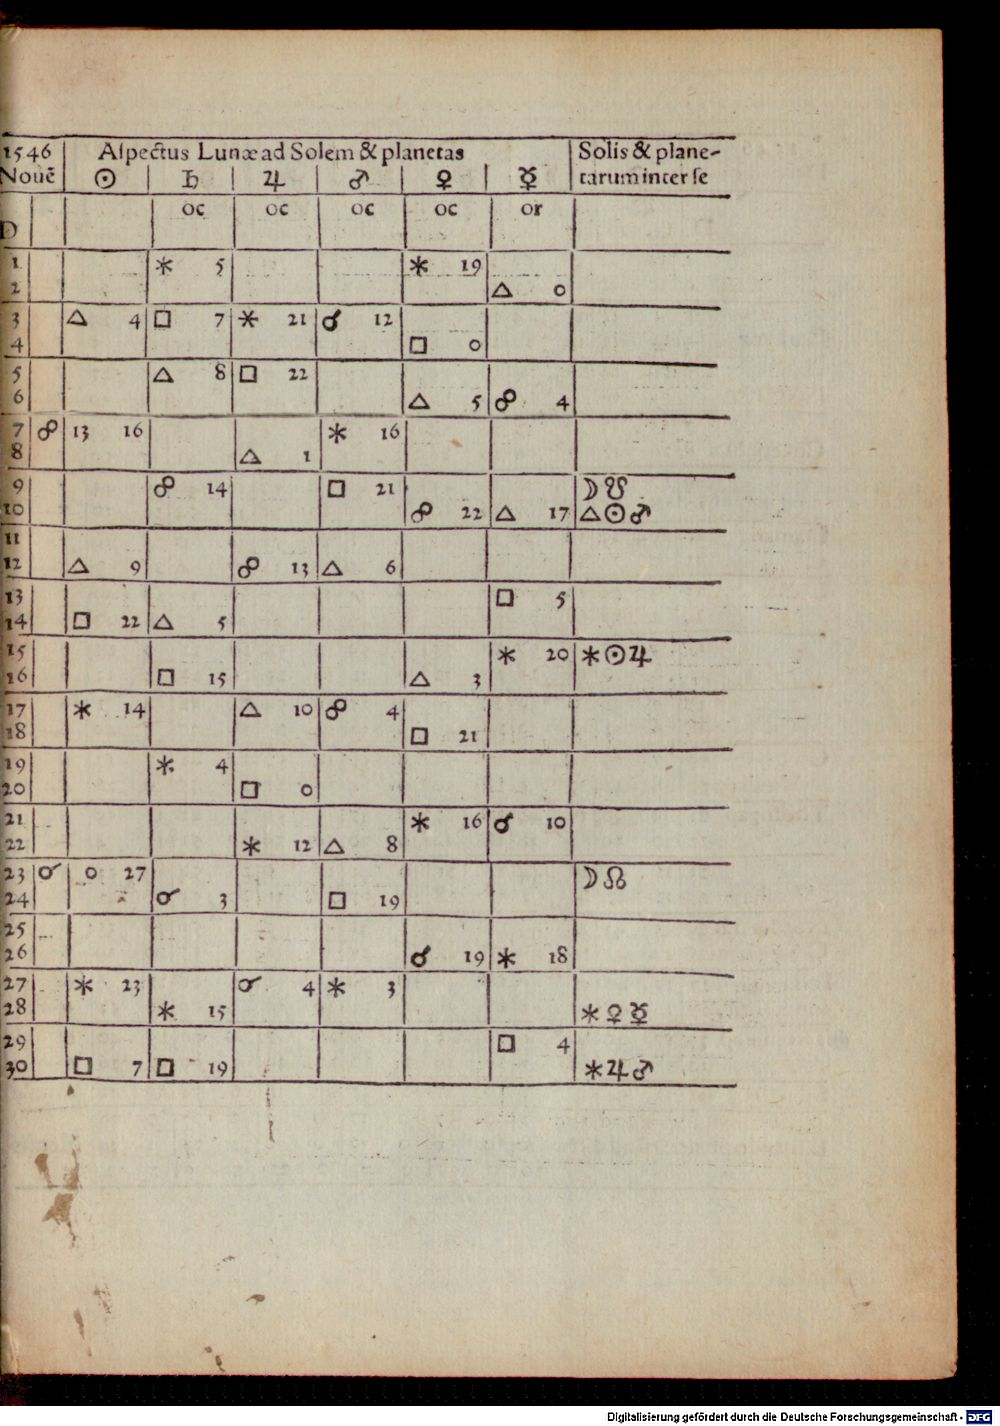 1546 Aſpectus Lunæ ad Solem & planetas Solis & plane-
Nouẽ ☉ ♄ ♃ ♂ ♀ ☿ tarum inter ſe
oc oc oc oc or
D
1 ⚹ 5 ⚹ 19
2 △ 0
3 △ 4 □ 7 ⚹ 21 ☌ 12
4 □ 0
5 △ 8 □ 22
6 △ 5 ☍ 4
7 ☍ 13 16 ⚹ 16
8 △ 1
9 ☍ 14 □ 21 ☽ ☋
10 ☍ 22 △ 17 △ ☉ ♂
11
12 △ 9 ☍ 13 △ 6
13 □ 5
14 □ 22 △ 5
15 ⚹ 20 ⚹ ☉ ♃
16 □ 15 △ 3
17 ⚹ 14 △ 10 ☍ 4
18 □ 21
19 ⚹ 4
20 □ 0
21 ⚹ 16 ☌ 10
22 ⚹ 12 △ 8
23 ☌ 0 27 ☽ ☊
24 ☌ 3 □ 19
25
26 ☌ 19 ⚹ 18
27 ⚹ 23 ☌ 4 ⚹ 3
28 ⚹ 15 ⚹ ♀ ☿
29 □ 4
30 □ 7 □ 19 ⚹ ♃ ♂
Digitalisierung gefördert durch die Deutsche Forschungsgemeinschaft - DFG